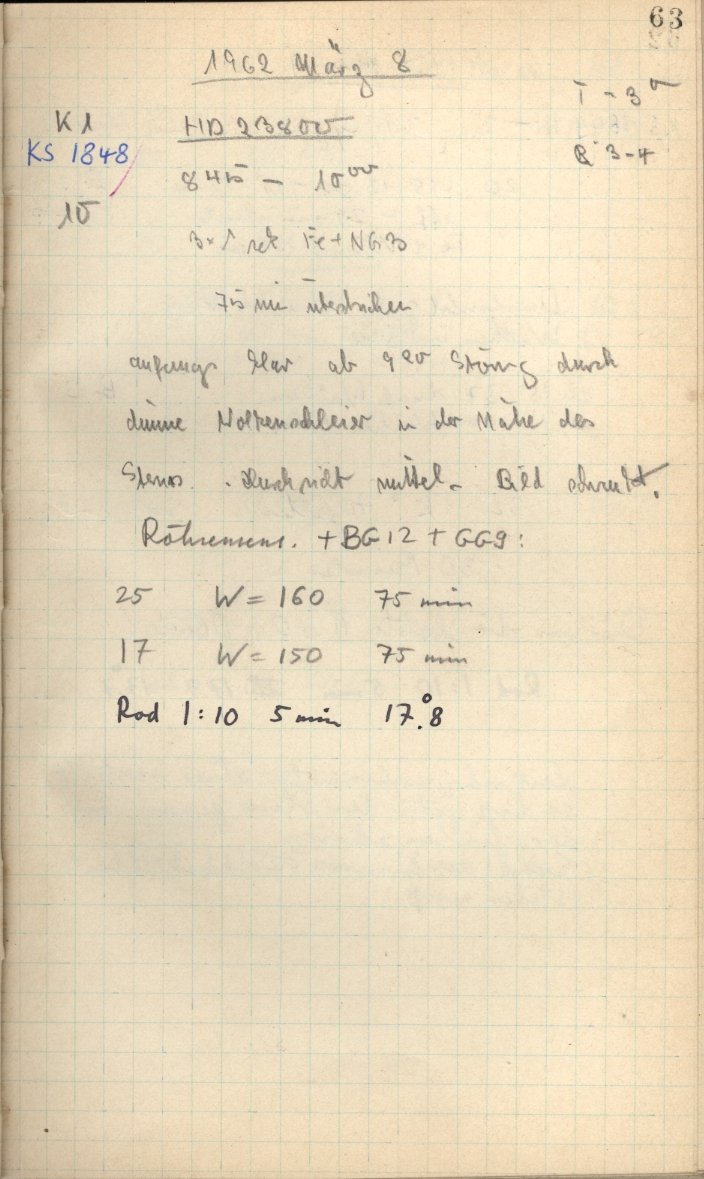 63
1962 März 8
T - 3°
K 1
HD 23800
KS 1848
B 3-4
8 45 - 10 00
10
Fe + NG3
75 min überstrichen
anfangs klar ab 9 20 Störung durch
dünne Wolkenschleier in der Nähe des
Sterns. Durchsicht mittel - Bild
+ BG 12 + GG9:
25 W = 160 75 min
17 W = 150 75 min
Rod 1:10 5 min 17.°8